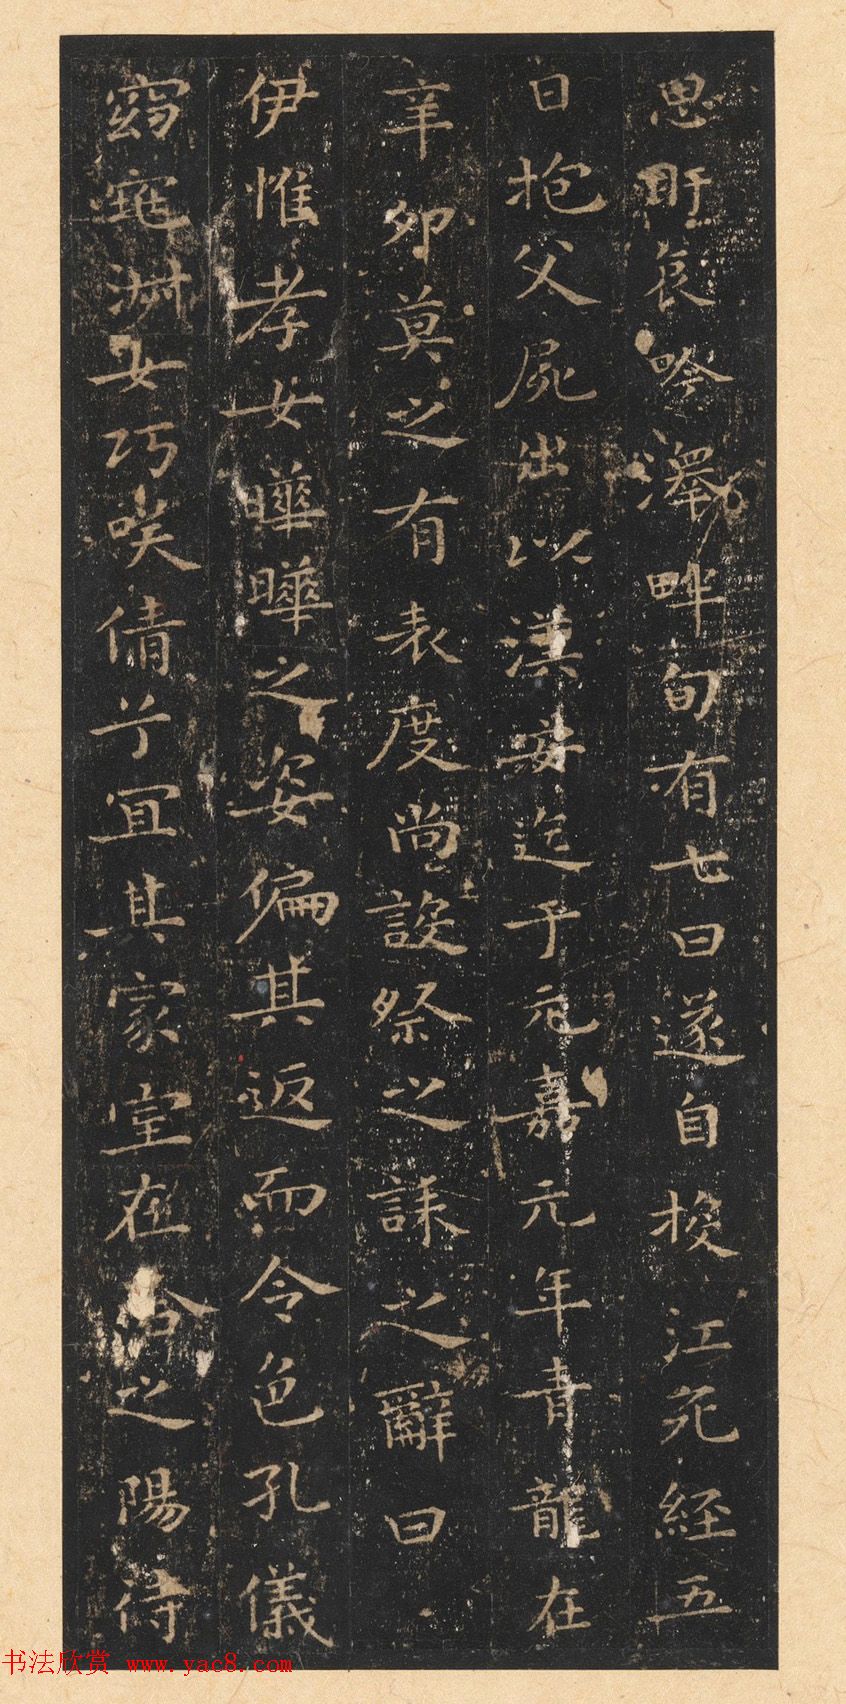 思盱哀吟澤畔旬有七日遂自投江死經五
日抱父屍出以漢安迄于元嘉元年青龍在
辛卯莫之有表度尚設祭之誄之辭曰
伊惟孝女曄曄之姿偏其返而令色孔儀
窈窕淑女巧咲倩兮宜其家室在洽之陽待
书法欣赏 www.yac8.com